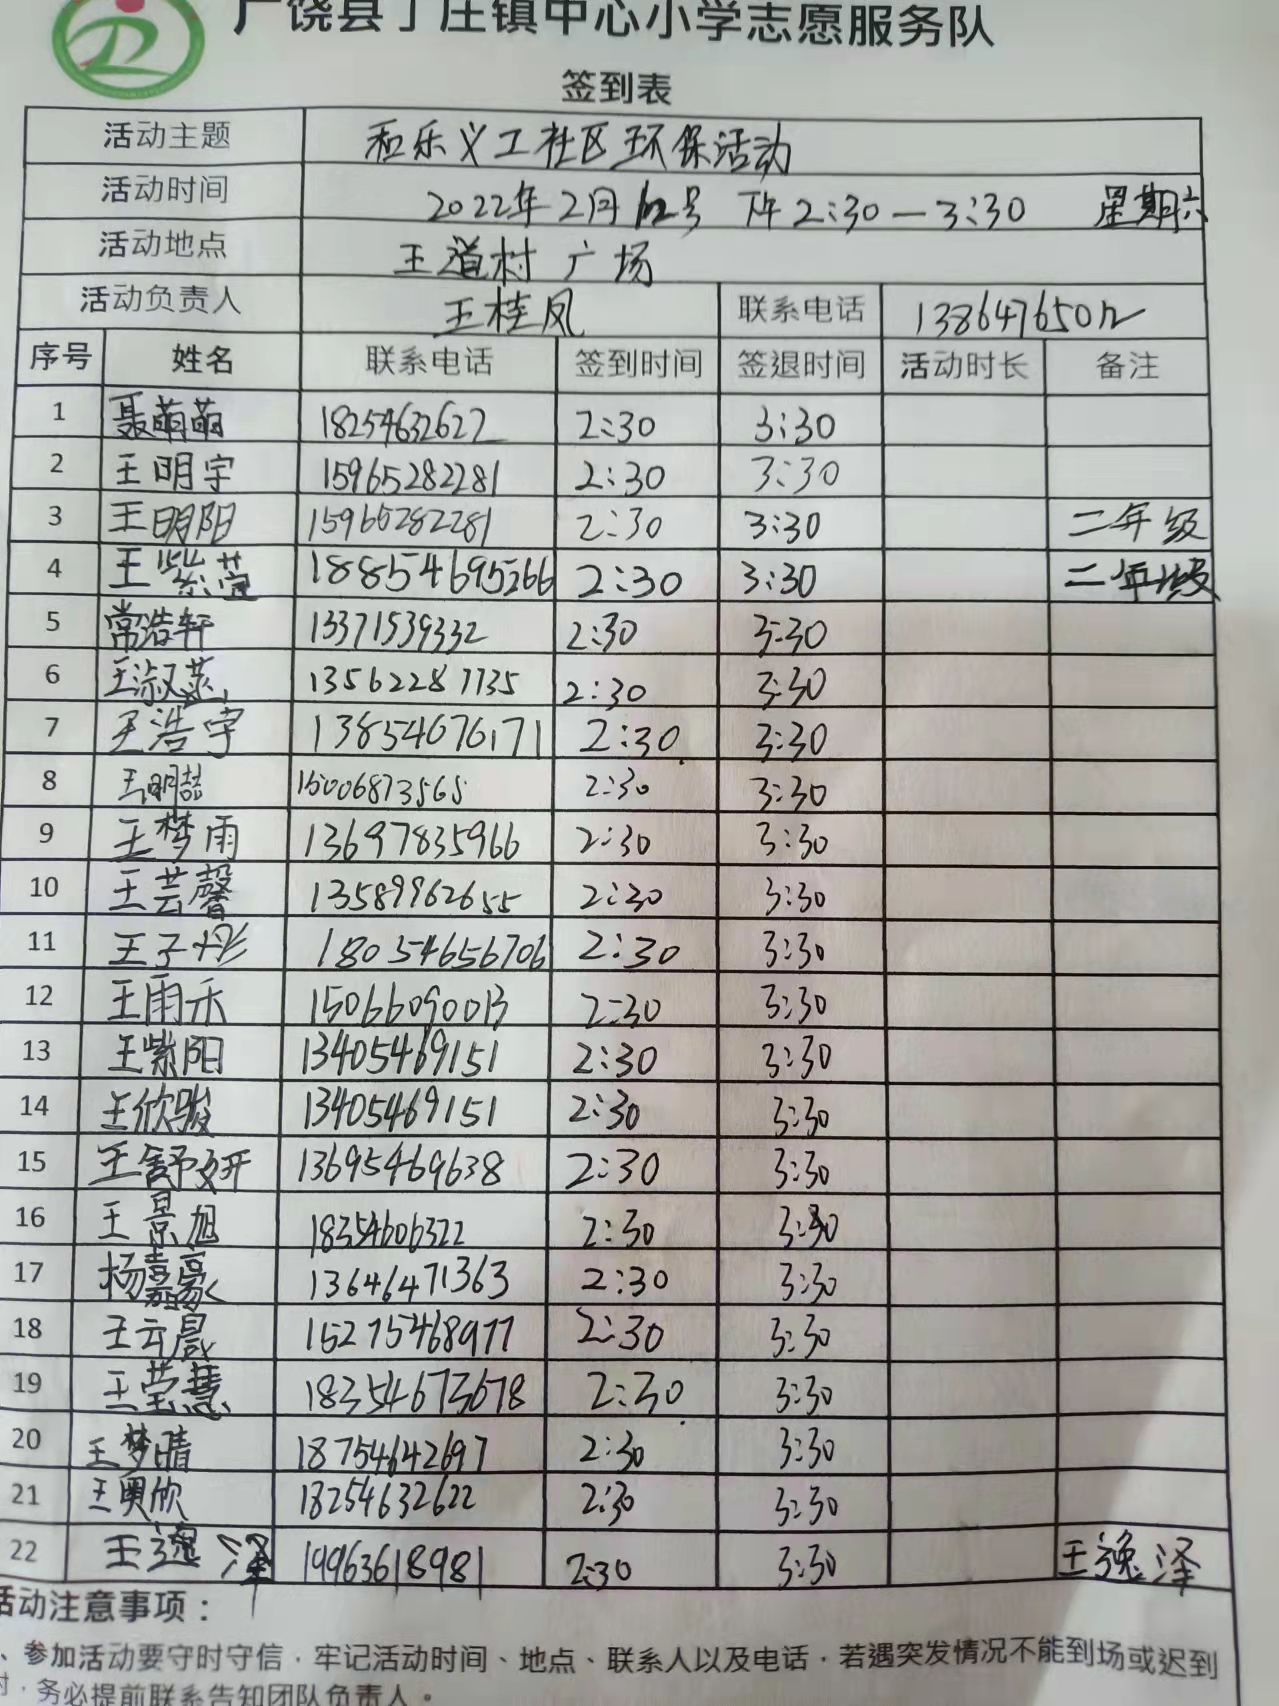 广饶县丁庄镇中心小学志愿服务队
签到表
活动主题 和乐义工社区环保活动
活动时间 2022年2月12号 下午2:30—3:30 星期六
活动地点 王道村广场
活动负责人 王桂凤 联系电话 13864765012
序号 姓名 联系电话 签到时间 签退时间 活动时长 备注
1 聂萌萌 18254632622 2:30 3:30
2 王明宇 15965282281 2:30 3:30
3 王明阳 15965282281 2:30 3:30 二年级
4 王紫萱 188854695266 2:30 3:30 二年级
5 常浩轩 13371539332 2:30 3:30
6 王淑燕 13562287735 2:30 3:30
7 王浩宇 13854676171 2:30 3:30
8 王明喆 15006873565 2:30 3:30
9 王梦雨 13697835966 2:30 3:30
10 王芸馨 13589962655 2:30 3:30
11 王子彤 18054656706 2:30 3:30
12 王雨禾 15066090013 2:30 3:30
13 王紫阳 13405469151 2:30 3:30
14 王欣骏 13405469151 2:30 3:30
15 王舒妍 13695469638 2:30 3:30
16 王景旭 18354606322 2:30 3:30
17 杨嘉豪 13646471363 2:30 3:30
18 王云晨 15275468977 2:30 3:30
19 王莹慧 18354673678 2:30 3:30
20 王梦晴 18754642697 2:30 3:30
21 王奥欣 18254632622 2:30 3:30
22 王逸泽 19963618981 2:30 3:30 王逸泽
活动注意事项：
、参加活动要守时守信，牢记活动时间、地点、联系人以及电话，若遇突发情况不能到场或迟到
时，务必提前联系告知团队负责人。